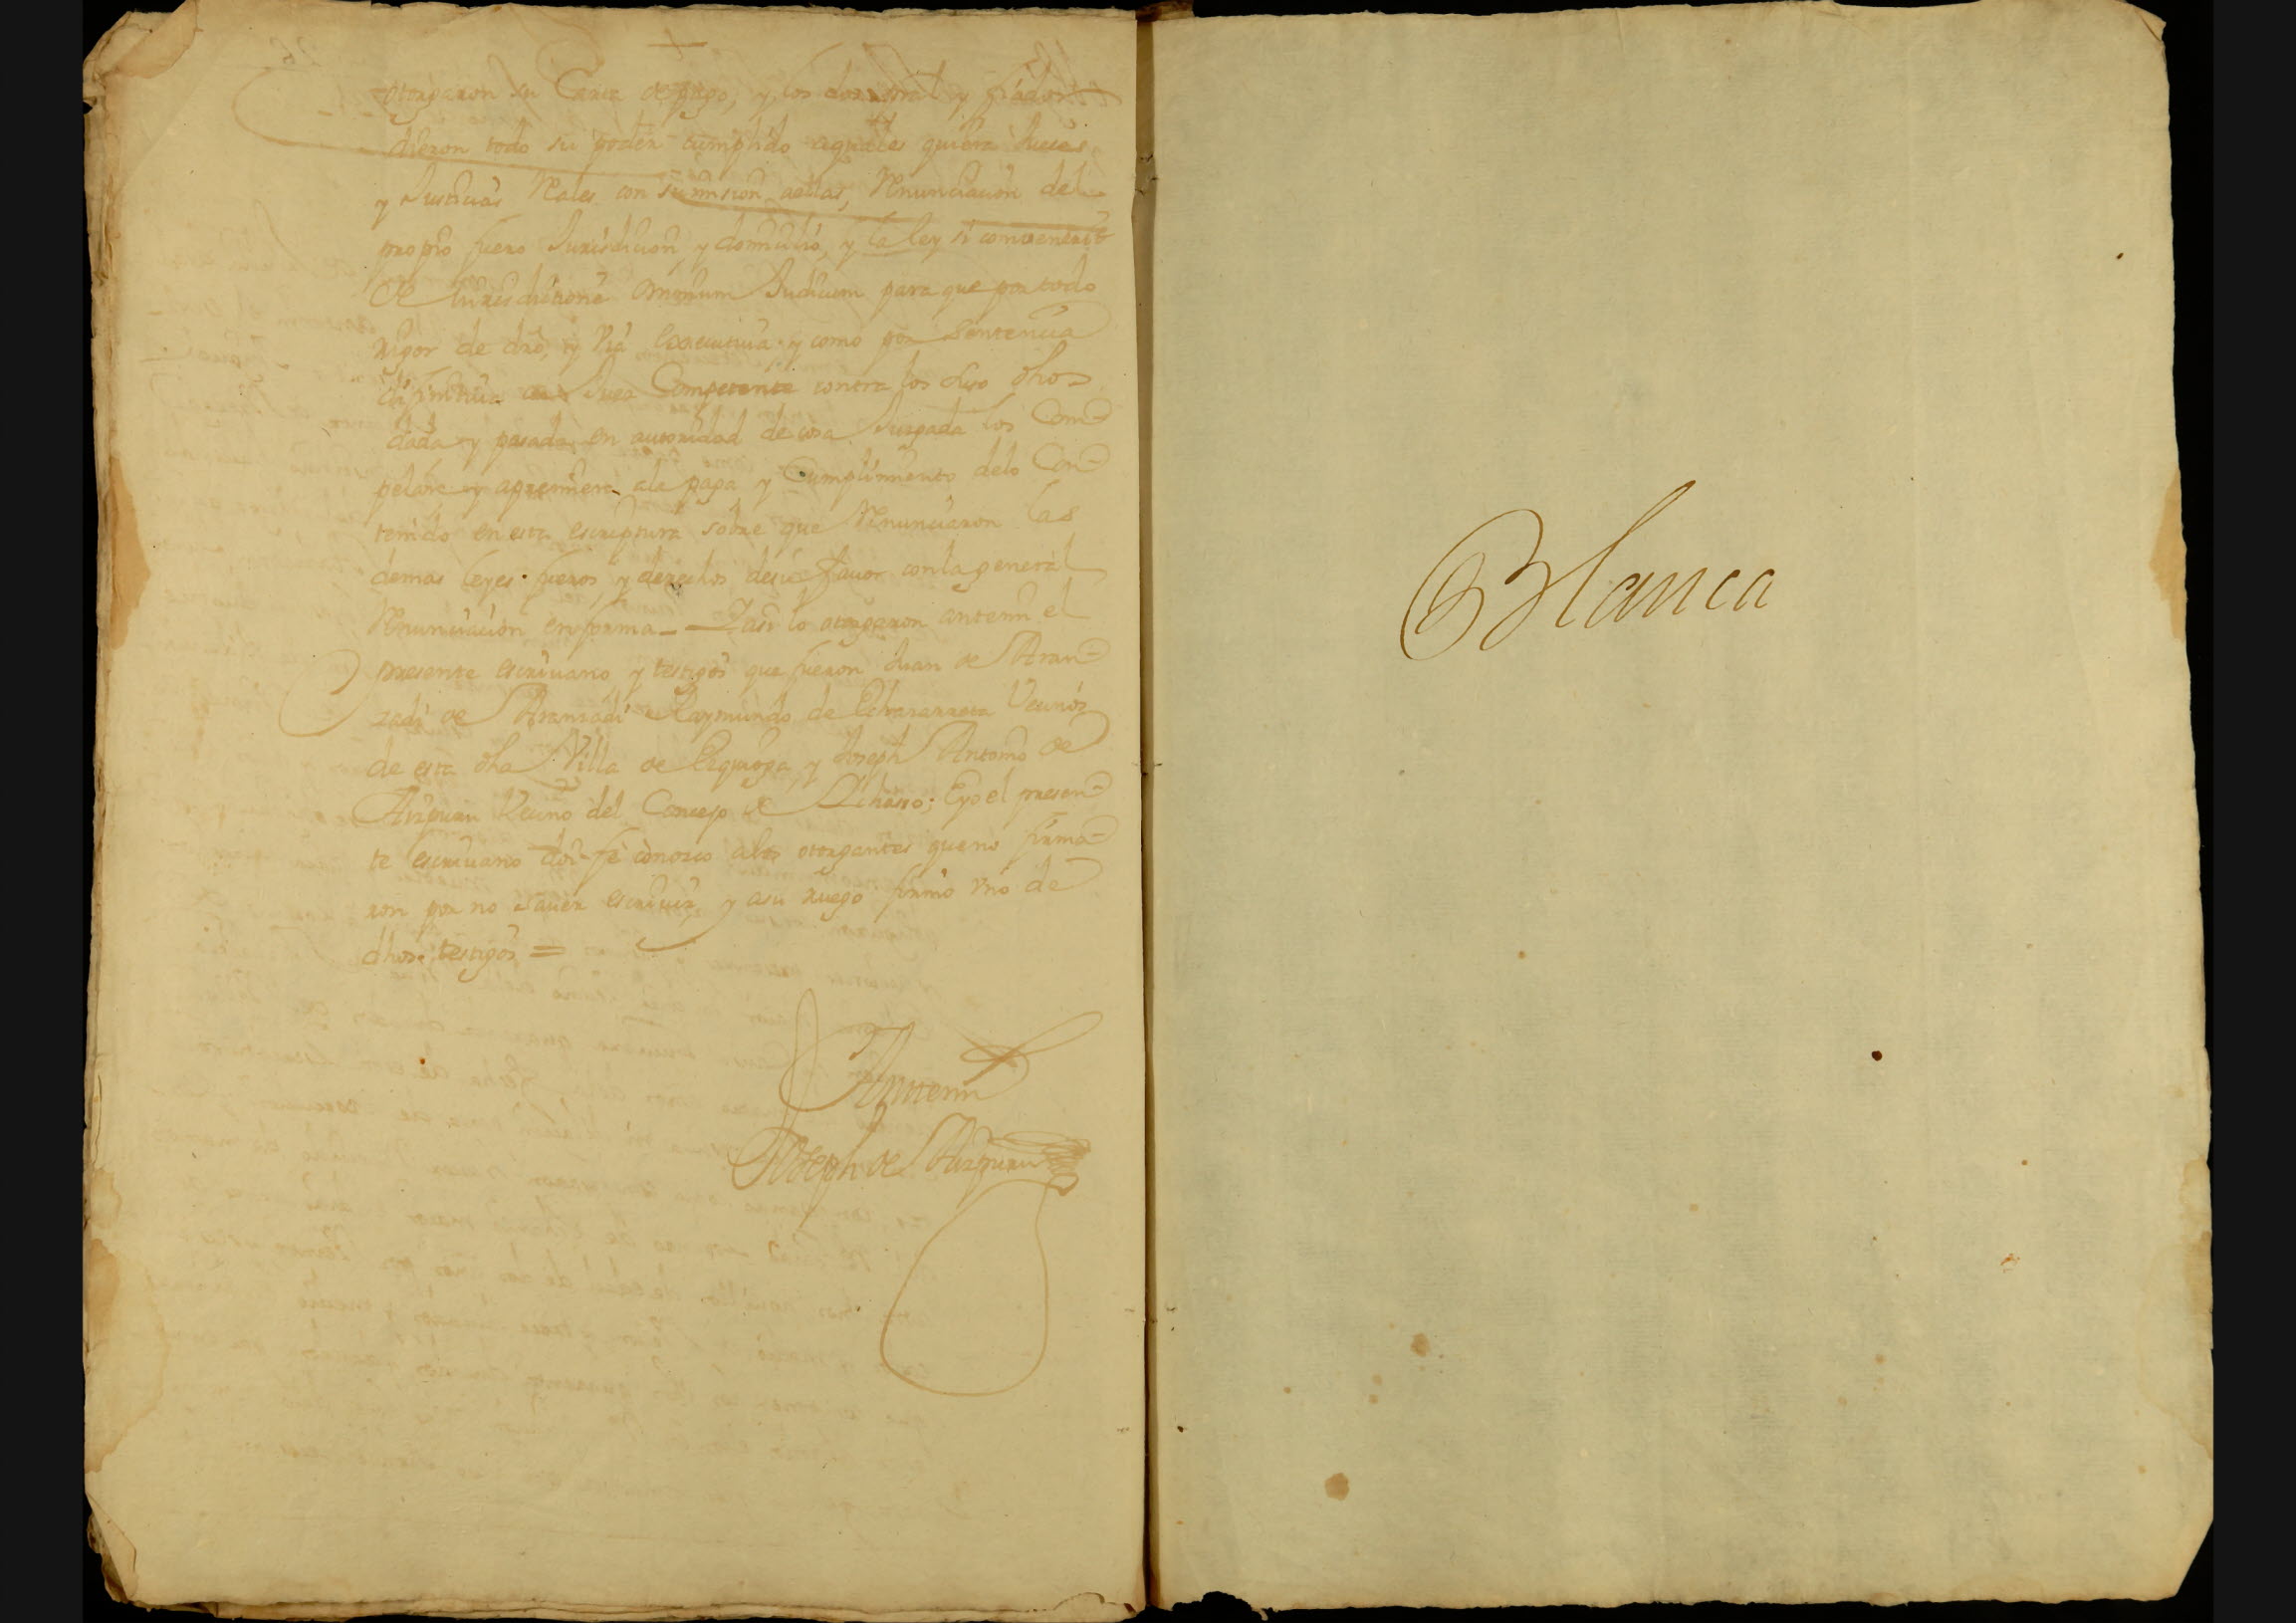 otorgaron su Carta de pago, y los dos prãl y fiador
dieron todo su poder cumplido a quales quiera Jueces
y Justicias Reales con sumision a ellas, Renunciacion del
propio fuero Jurisdicion, y domicilio, y la ley si convenerit
de Jurisdictione omnium Judicum para que por todo
rigor de dro, y via executiva y como por sentencia
difinitiva de Juez Competente contra los suso dhos
dada y pasada en autoridad de cosa Juzgada los Com-
pelan y apremien a la paga y Cumplimiento delo Con-
tenido en esta escriptura sobre que Renunciaron las
demas leyes fueros, y derechos de su favor con la general
Renunciacion en forma — Y asi lo otorgaron antemi el
presente escrivano y testigos que fueron Juan de Aran-
zadi de Aranzadi Raymundo de Echavarrieta Vecinos
de esta dha Villa de Ezquioga, y Joseph Antonio de
Aizpuru Vecino del Concejo de ; E yo el presen-
te escrivano doi fe conozco a los otorgantes que no firma-
ron por no saver escrivir, y a su ruego firmó vno de
dhos testigos =
Antemi
Joseph de Aizpuru
Blanca